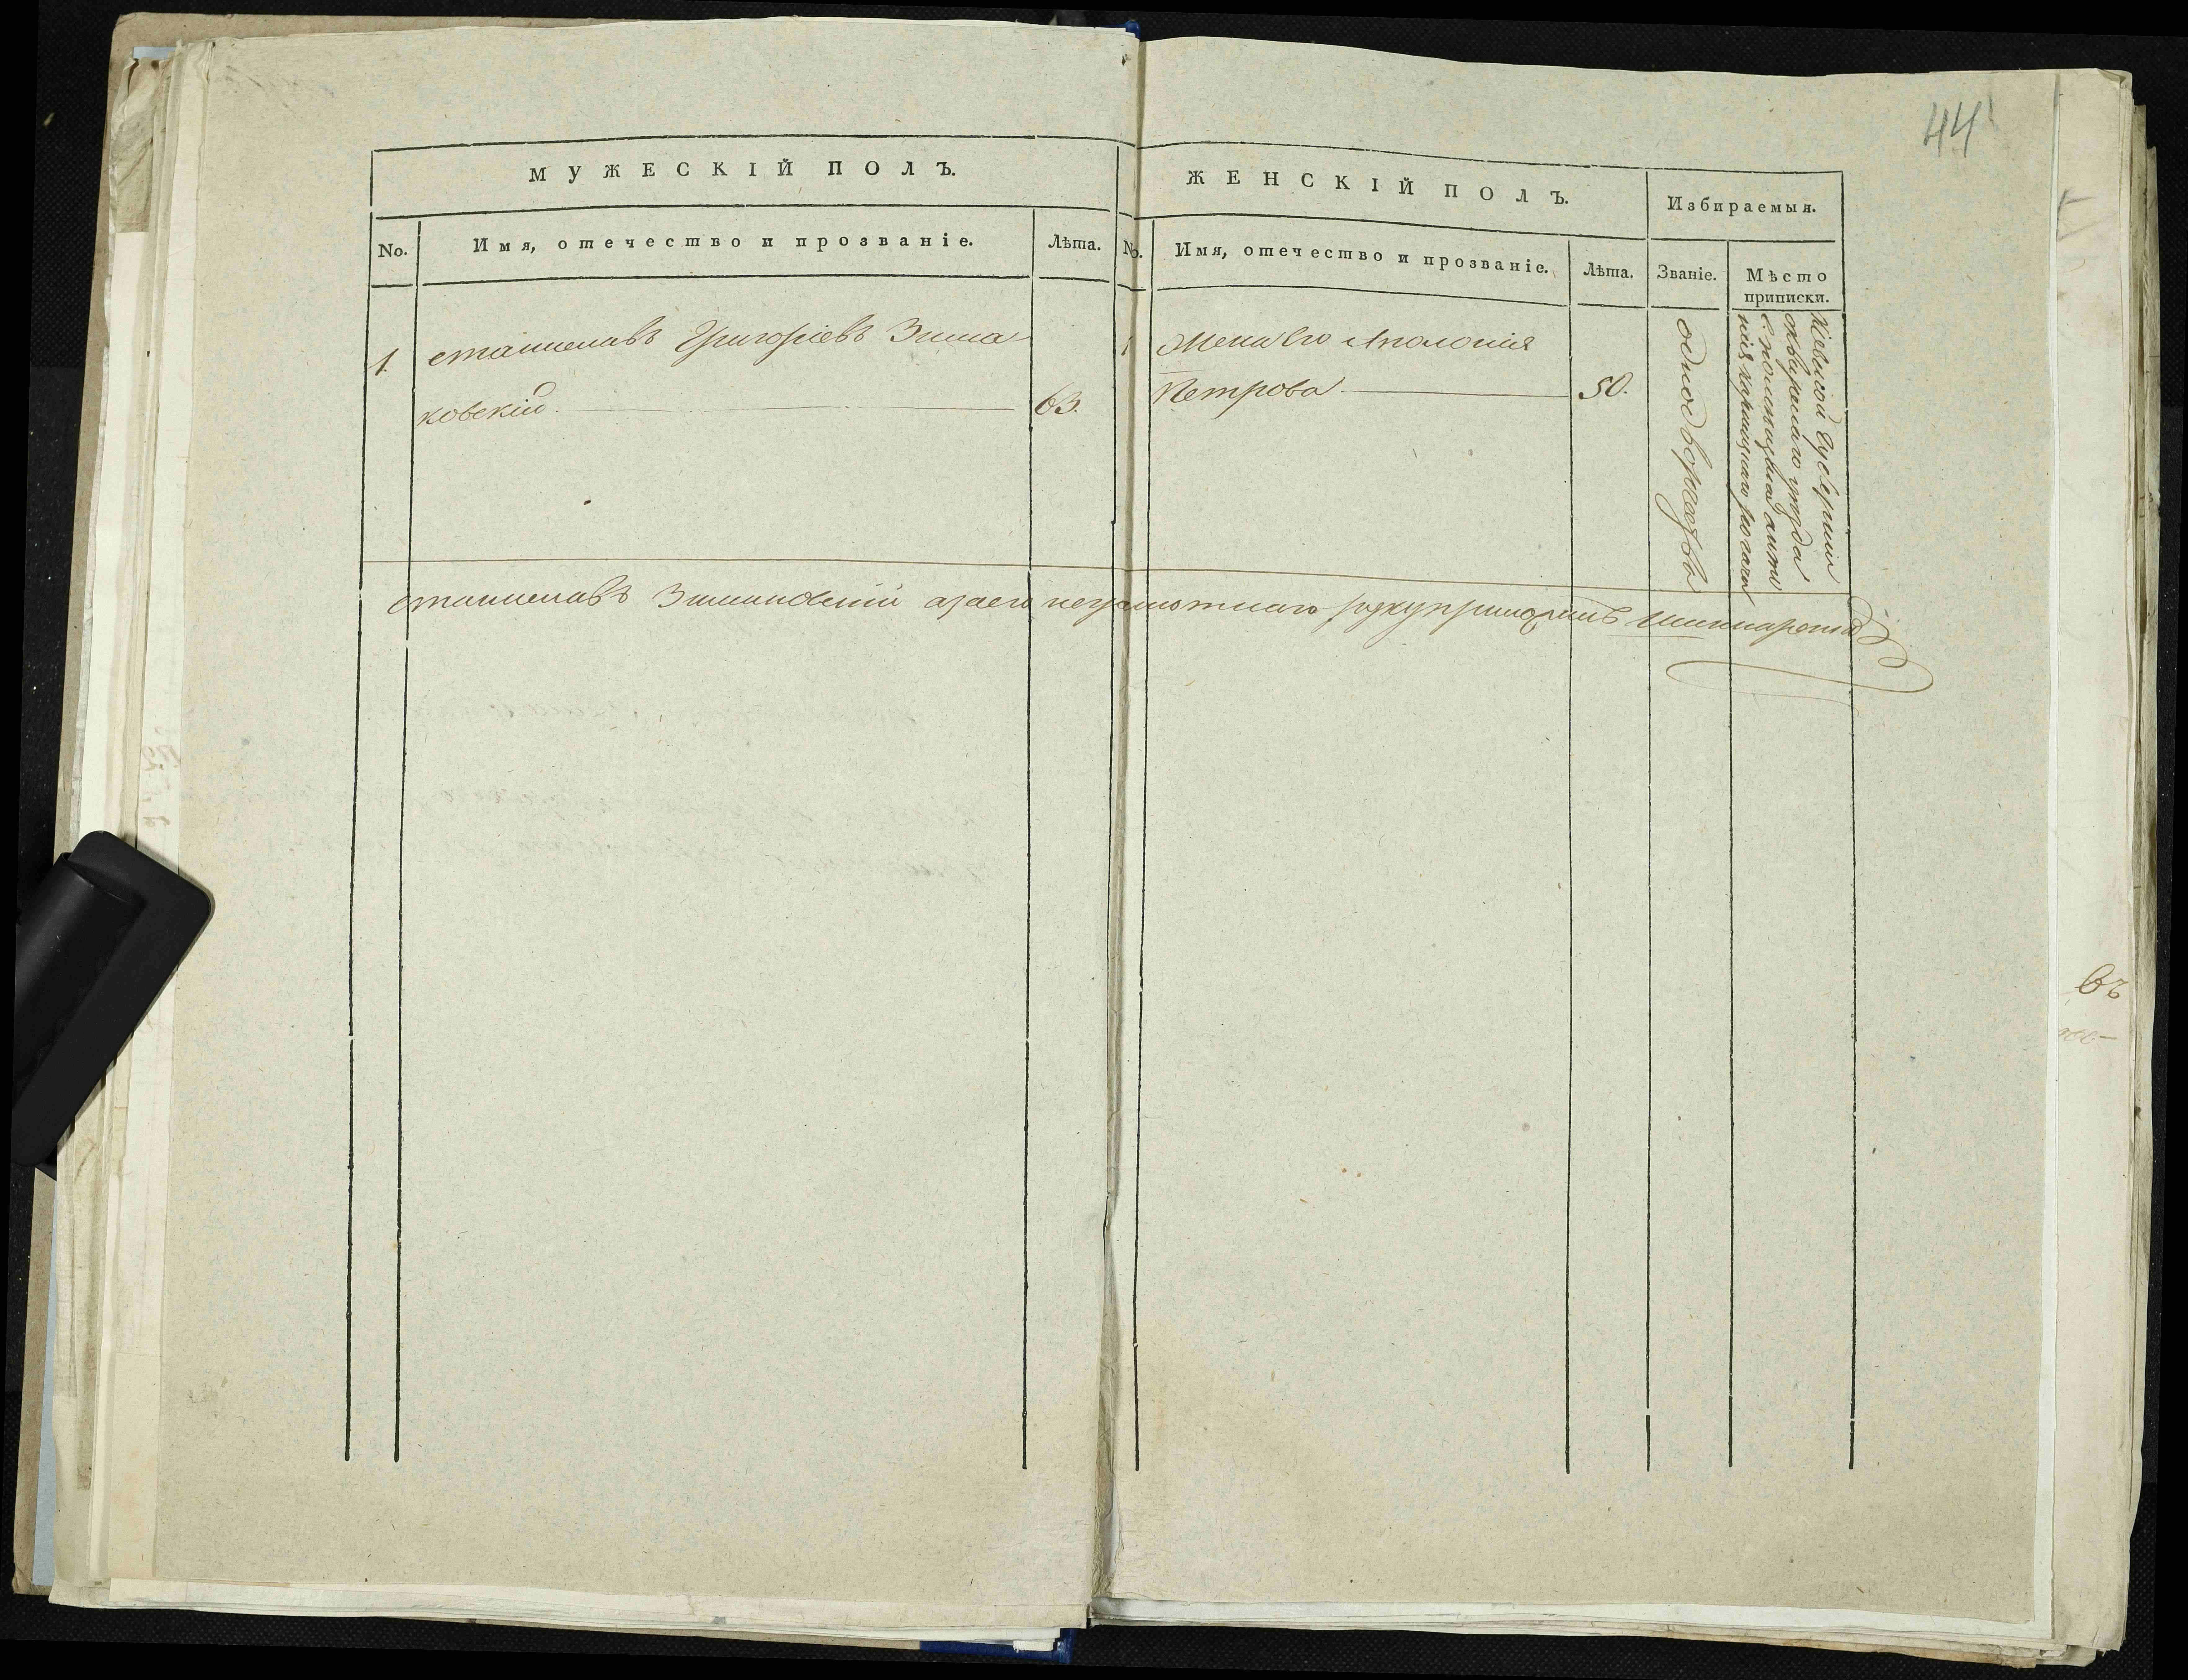 44
МУЖЕСКІЙ ПОЛЪ.
ЖЕНСКІЙ ПОЛЪ.
Избираемыя.
No.
Имя, отечество и прозваніе.
Лѣта.
No.
Имя, отечество и прозваніе.
Лѣта.
Званіе.
Мѣсто
приписки.
1.
станиславъ Григоріевъ Зима
ковскій.
63.
1
Жена Его Аполонія
Петрова
50.
однодворцевъ
Кіевской Губерніи
сквирскаго уезда
с.
станиславъ Зимаковскій азаего неграмотнаго руку приложилъ
въ